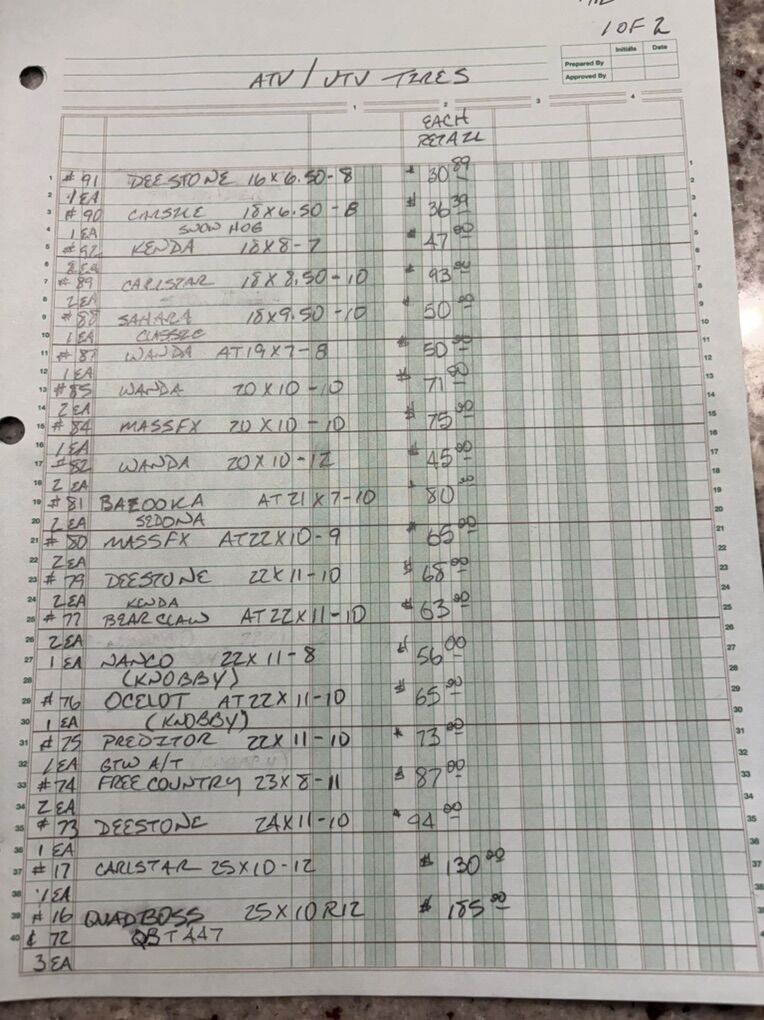 1 OF 2
Initials Date
Prepared By
Approved By
ATV / UTV TIRES
1 2 3 4
EACH
RETAIL
1 #91 DEESTONE 16X6.50-8 $30.89 1
2 1 EA 2
3 #90 CARSLIE 18X6.50-8 $36.39 3
4 1 EA SNOW HOG 4
5 #92 KENDA 18X8-7 $47.00 5
6 8 EA 6
7 #89 CARLSTAR 18X8.50-10 $93.00 7
8 2 EA 8
9 #88 SAHARA 18X9.50-10 $50.00 9
10 1 EA CLASSIC 10
11 #87 WANDA AT19X7-8 $50.00 11
12 1 EA 12
13 #85 WANDA 20X10-10 $71.00 13
14 2 EA 14
15 #84 MASSFX 20X10-10 $75.00 15
16 1 EA 16
17 #82 WANDA 20X10-12 $45.00 17
18 2 EA 18
19 #81 BAZOOKA AT21X7-10 $80.00 19
20 2 EA SEDONA 20
21 #80 MASSFX AT22X10-9 $65.00 21
22 2 EA 22
23 #79 DEESTONE 22X11-10 $68.00 23
24 2 EA KENDA 24
25 #77 BEARCLAW AT22X11-10 $63.00 25
26 2 EA 26
27 1 EA NANCO 22X11-8 $56.00 27
28 (KNOBBY) 28
29 #76 OCELOT AT22X11-10 $65.00 29
30 1 EA (KNOBBY) 30
31 #75 PREDITOR 22X11-10 $73.00 31
32 1 EA GTW A/T 32
33 #74 FREECOUNTRY 23X8-11 $87.00 33
34 2 EA 34
35 #73 DEESTONE 24X11-10 $94.00 35
36 1 EA 36
37 #17 CARLSTAR 25X10-12 $130.00 37
38 1 EA 38
39 #16 QUADBOSS 25X10R12 $185.00 39
40 & 72 QBT447 40
3 EA